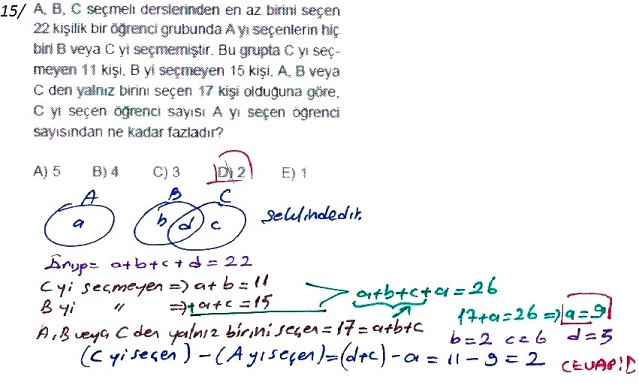 15/ A, B, C seçmeli derslerinden en az birini seçen
22 kişilik bir öğrenci grubunda A yı seçenlerin hiç
biri B veya C yi seçmemiştir. Bu grupta C yi seç-
meyen 11 kişi, B yi seçmeyen 15 kişi, A, B veya
C den yalnız birini seçen 17 kişi olduğuna göre,
C yi seçen öğrenci sayısı A yı seçen öğrenci
sayısından ne kadar fazladır?
A) 5 B) 4 C) 3 D) 2 E) 1
A B C
a b d c şeklindedir.
Grup= a+b+c+d=22
C yi seçmeyen => a+b=11
B yi " => +a+c=15
a+b+c+a=26
17+a=26 => a=9
A, B veya C den yalnız birini seçen=17=a+b+c
b=2 c=6 d=5
(C yi seçen)-(A yı seçen)=(d+c)-a=11-9=2
CEVAP:D